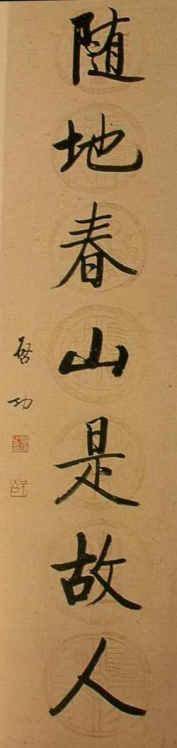 随地春山是故人
啓功